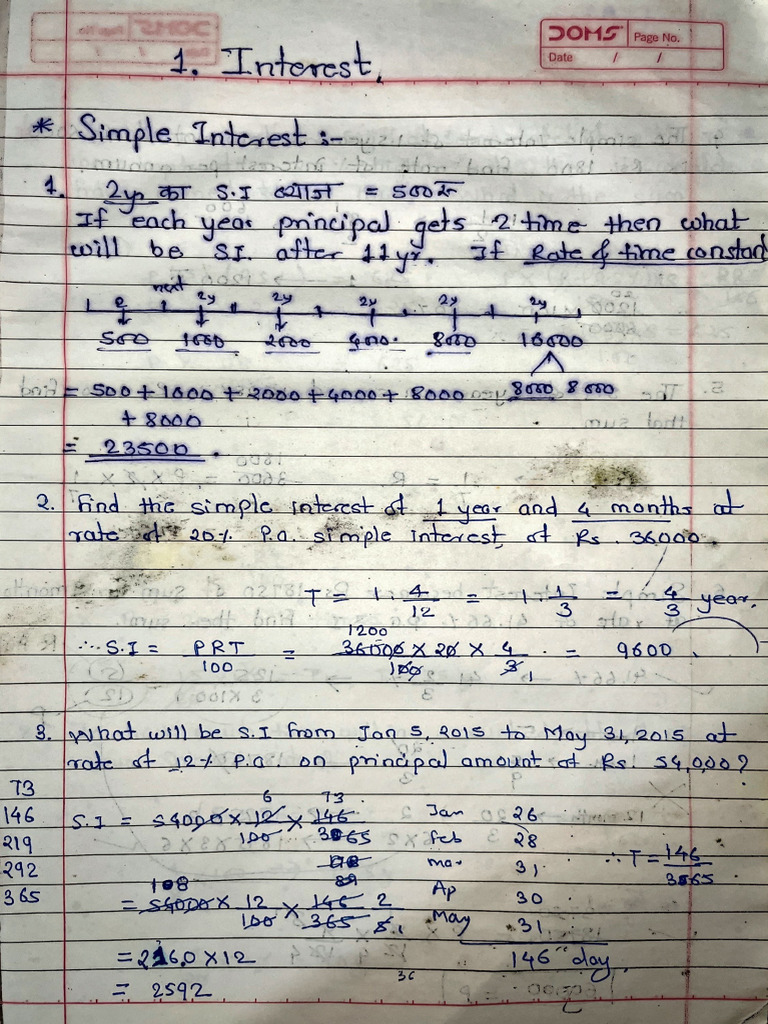 DOMS Page No.
Date / /
1. Interest.
* Simple Interest :-
1. 2yr का S.I ब्याज = 500रु
If each year principal gets 2 time then what
will be S.I. after 11yr. If Rate & time constant
next 2y 2y 2y 2y 2y
500 1000 2000 4000. 8000 16000
8000 8000
= 500 + 1000 + 2000 + 4000 + 8000
+ 8000
= 23500.
2. Find the simple interest of 1 year and 4 months at
rate of 20% P.a. simple interest, of Rs. 36000
T = 1 4/12 = 1 1/3 = 4/3 year.
1200
∴ S.I = PRT/100 = 36000 × 20/100 × 4/3 = 9600.
3. What will be S.I from Jan 5, 2015 to May 31, 2015 at
rate of 12% P.a. on principal amount of Rs. 54,000?
73
146
219
292
365
6 73
S.I = 54000 × 12/100 × 146/365
Jan 26
Feb 28
mar 31
Ap 30
May 31
146 day
∴ T = 146/365
108
= 54000 × 12/100 × 146/365 2/5
= 216.0 × 12
36
= 2592